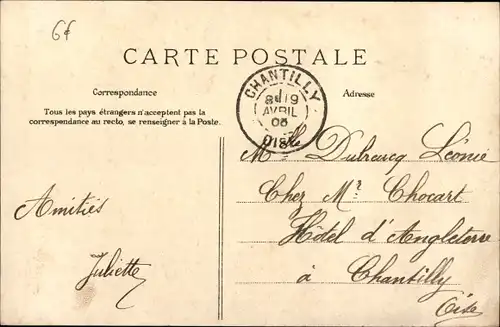 6f
CARTE POSTALE
Correspondance
Adresse
Tous les pays étrangers n'acceptent pas la
correspondance au recto, se renseigner à la Poste.
CHANTILLY
AVRIL
OISE
Amitiés
Juliette
Mlle Dubrucq Léonie
Chez Mr Chocart
Hôtel d'Angleterre
à Chantilly
Oise